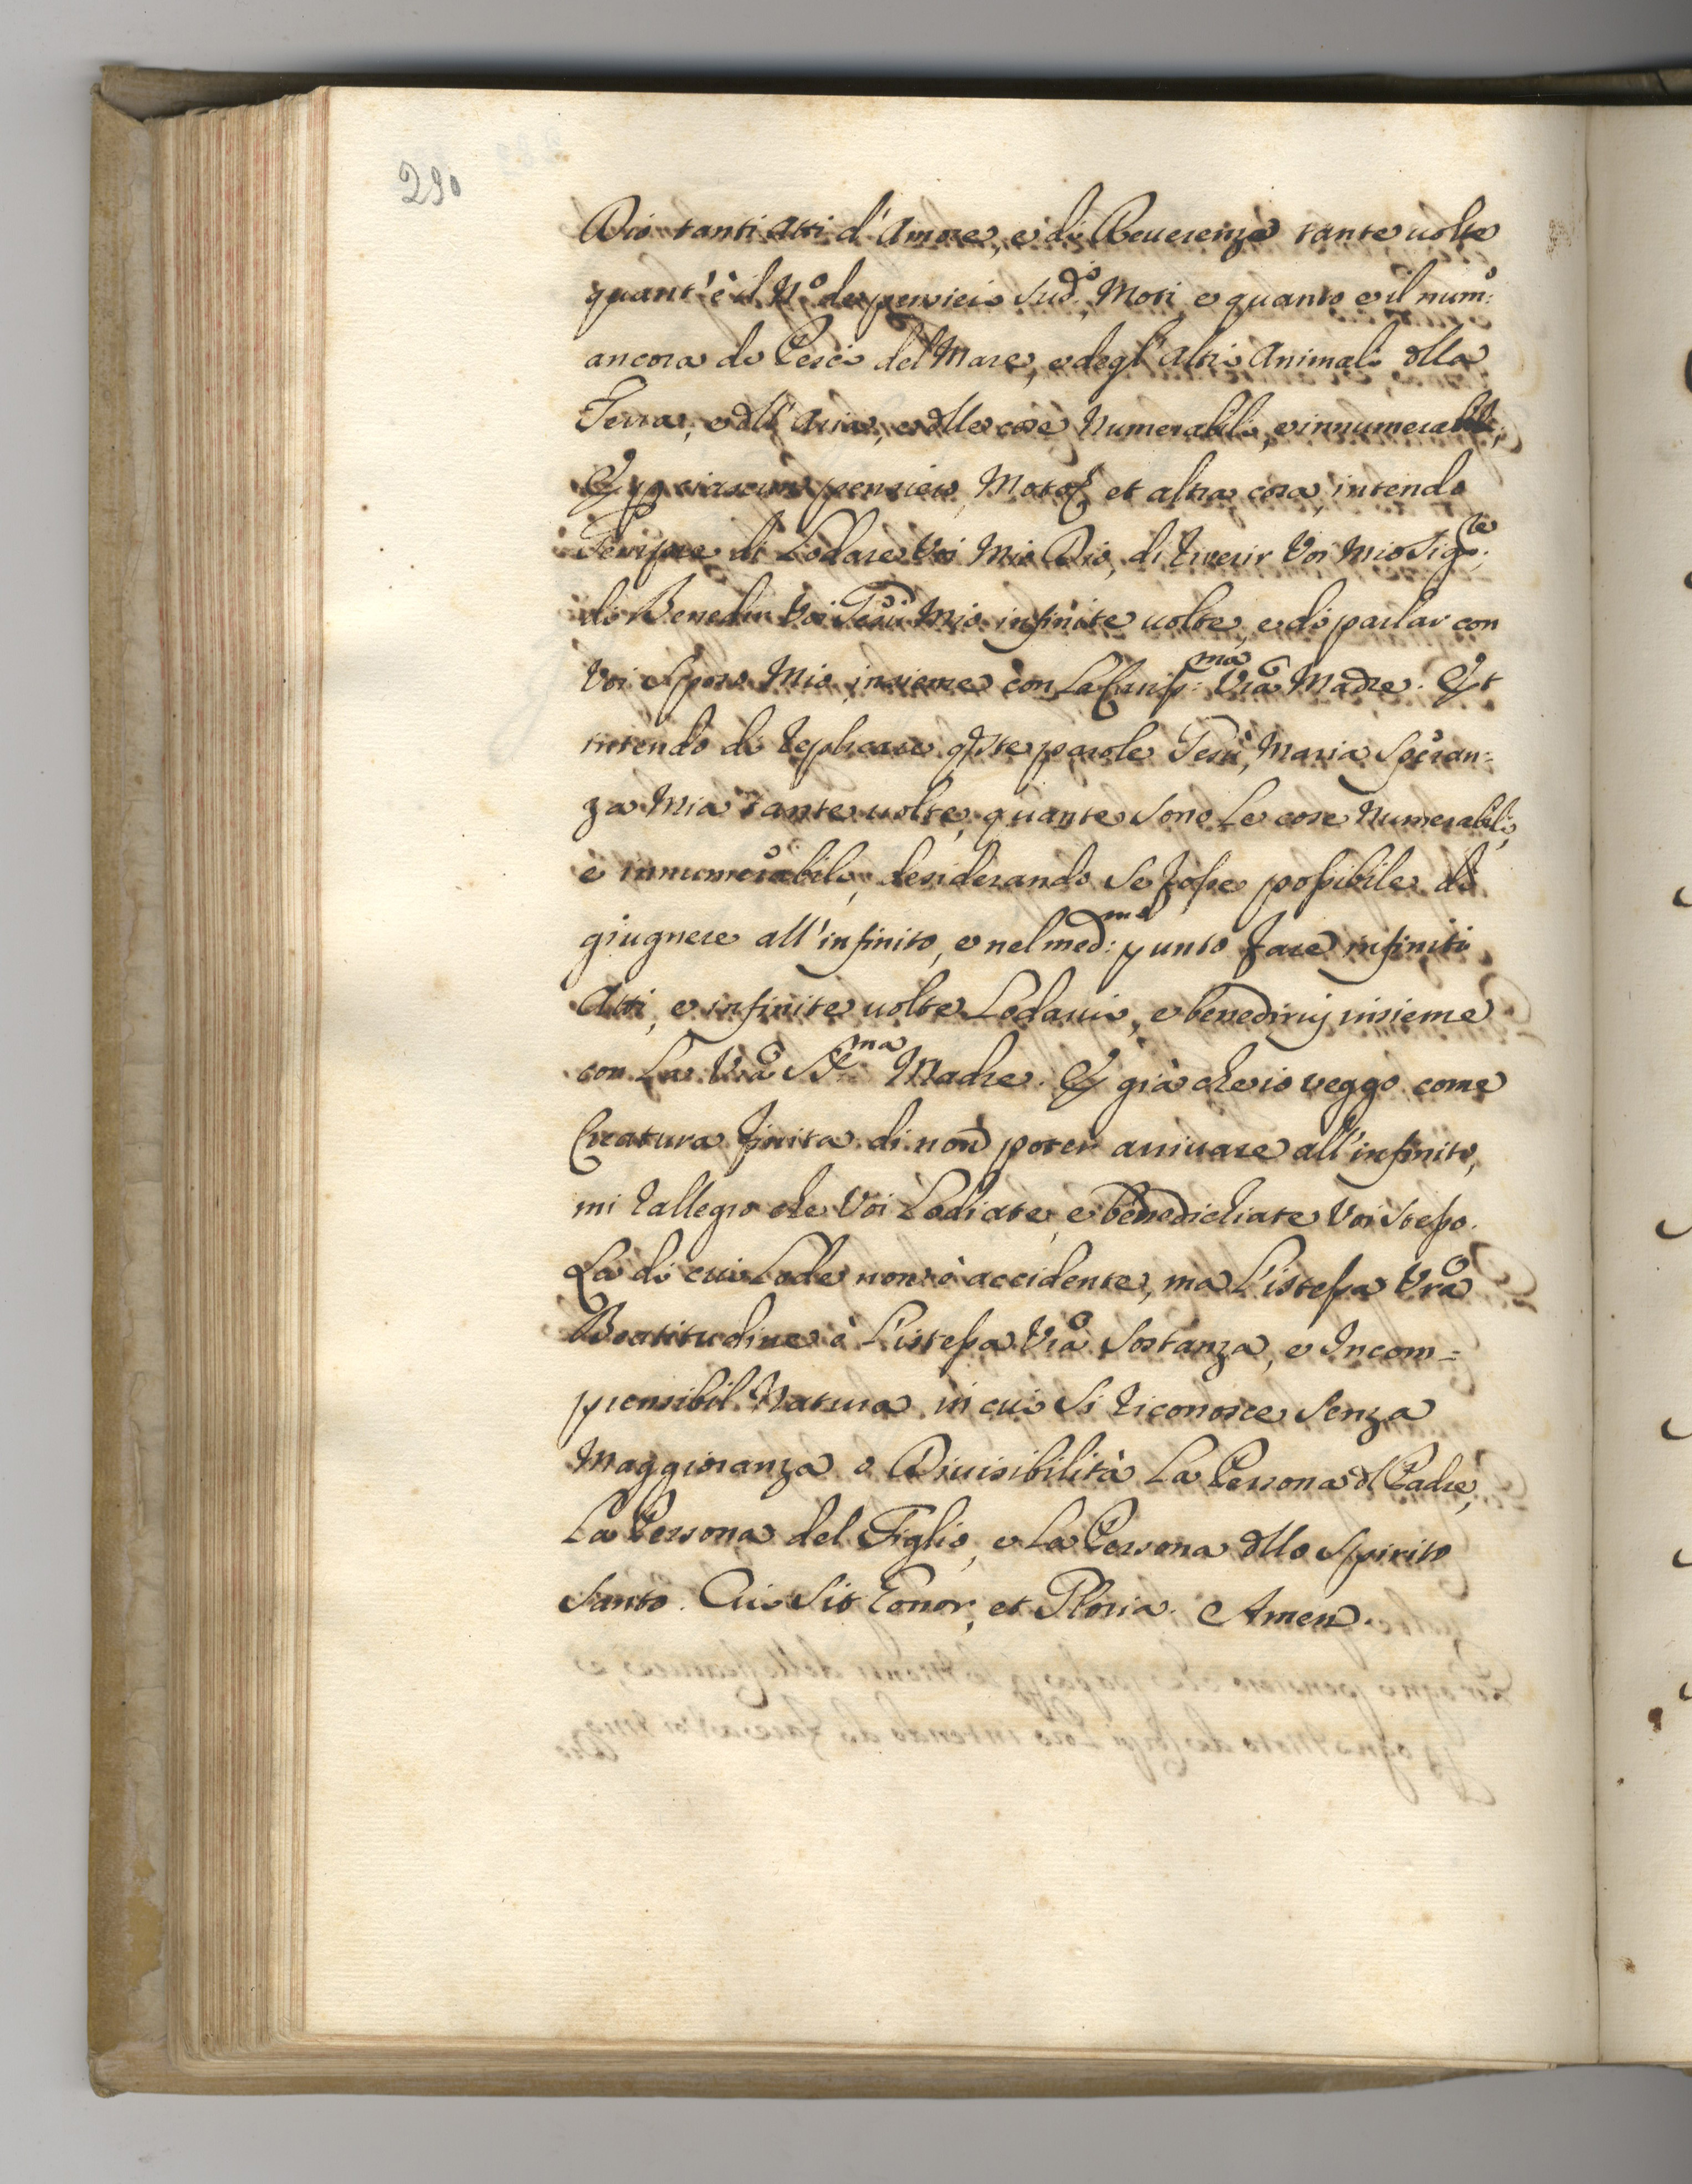 290
Dio tanti atti d'Amore, e di Reuerenze tante uolte
quant'è il N.º de pensieri sud.ⁱ, Moti, e quanto e il num:º
ancora de Pesci del Mare, e degl'altri Animali dlla
Terra, e dll'Aria, e dlle cose Numerabili, e innumerabili,
E p ciascun pensiero, Moto, et altra cosa, intendo
Sempre di Lodare Voi Mio Dio, di riuerir Voi Mio Sig.ʳᵉ,
di Benedir Voi Giesù Mio infinite uolte, e di parlar con
Voi Sposo Mio insieme con La Puriss:ᵐᵃ Vr̃a Madre. Et
intendo di replicare qste parole Iesù, Maria Speran=
za Mia tante uolte, quante sono Le cose Numerabili,
e innumerabili, desiderando se fosse possibile di
giugnere all'infinito, e nel med:ᵐᵒ punto fare infiniti
Atti, e infinite uolte Lodarui, e benedirui insieme
con La Vr̃a S.ᵐᵃ Madre. E già che io veggo come
Creatura finita di non poter arriuare all'infinito,
mi rallegro che Voi Lodiate, e benedichiate Voi stesso.
La di cui Lode non è accidente, ma L'istessa Vr̃a
Beatitudine è L'istessa Vr̃a Sostanza, e Incom=
prensibil Natura in cui si riconosce senza
Maggioranza o Diuisibilità La Persona dl Padre,
La Persona del Figlio, e La Persona dllo Spirito
Santo. Cui sit Honor, et Gloria. Amen.